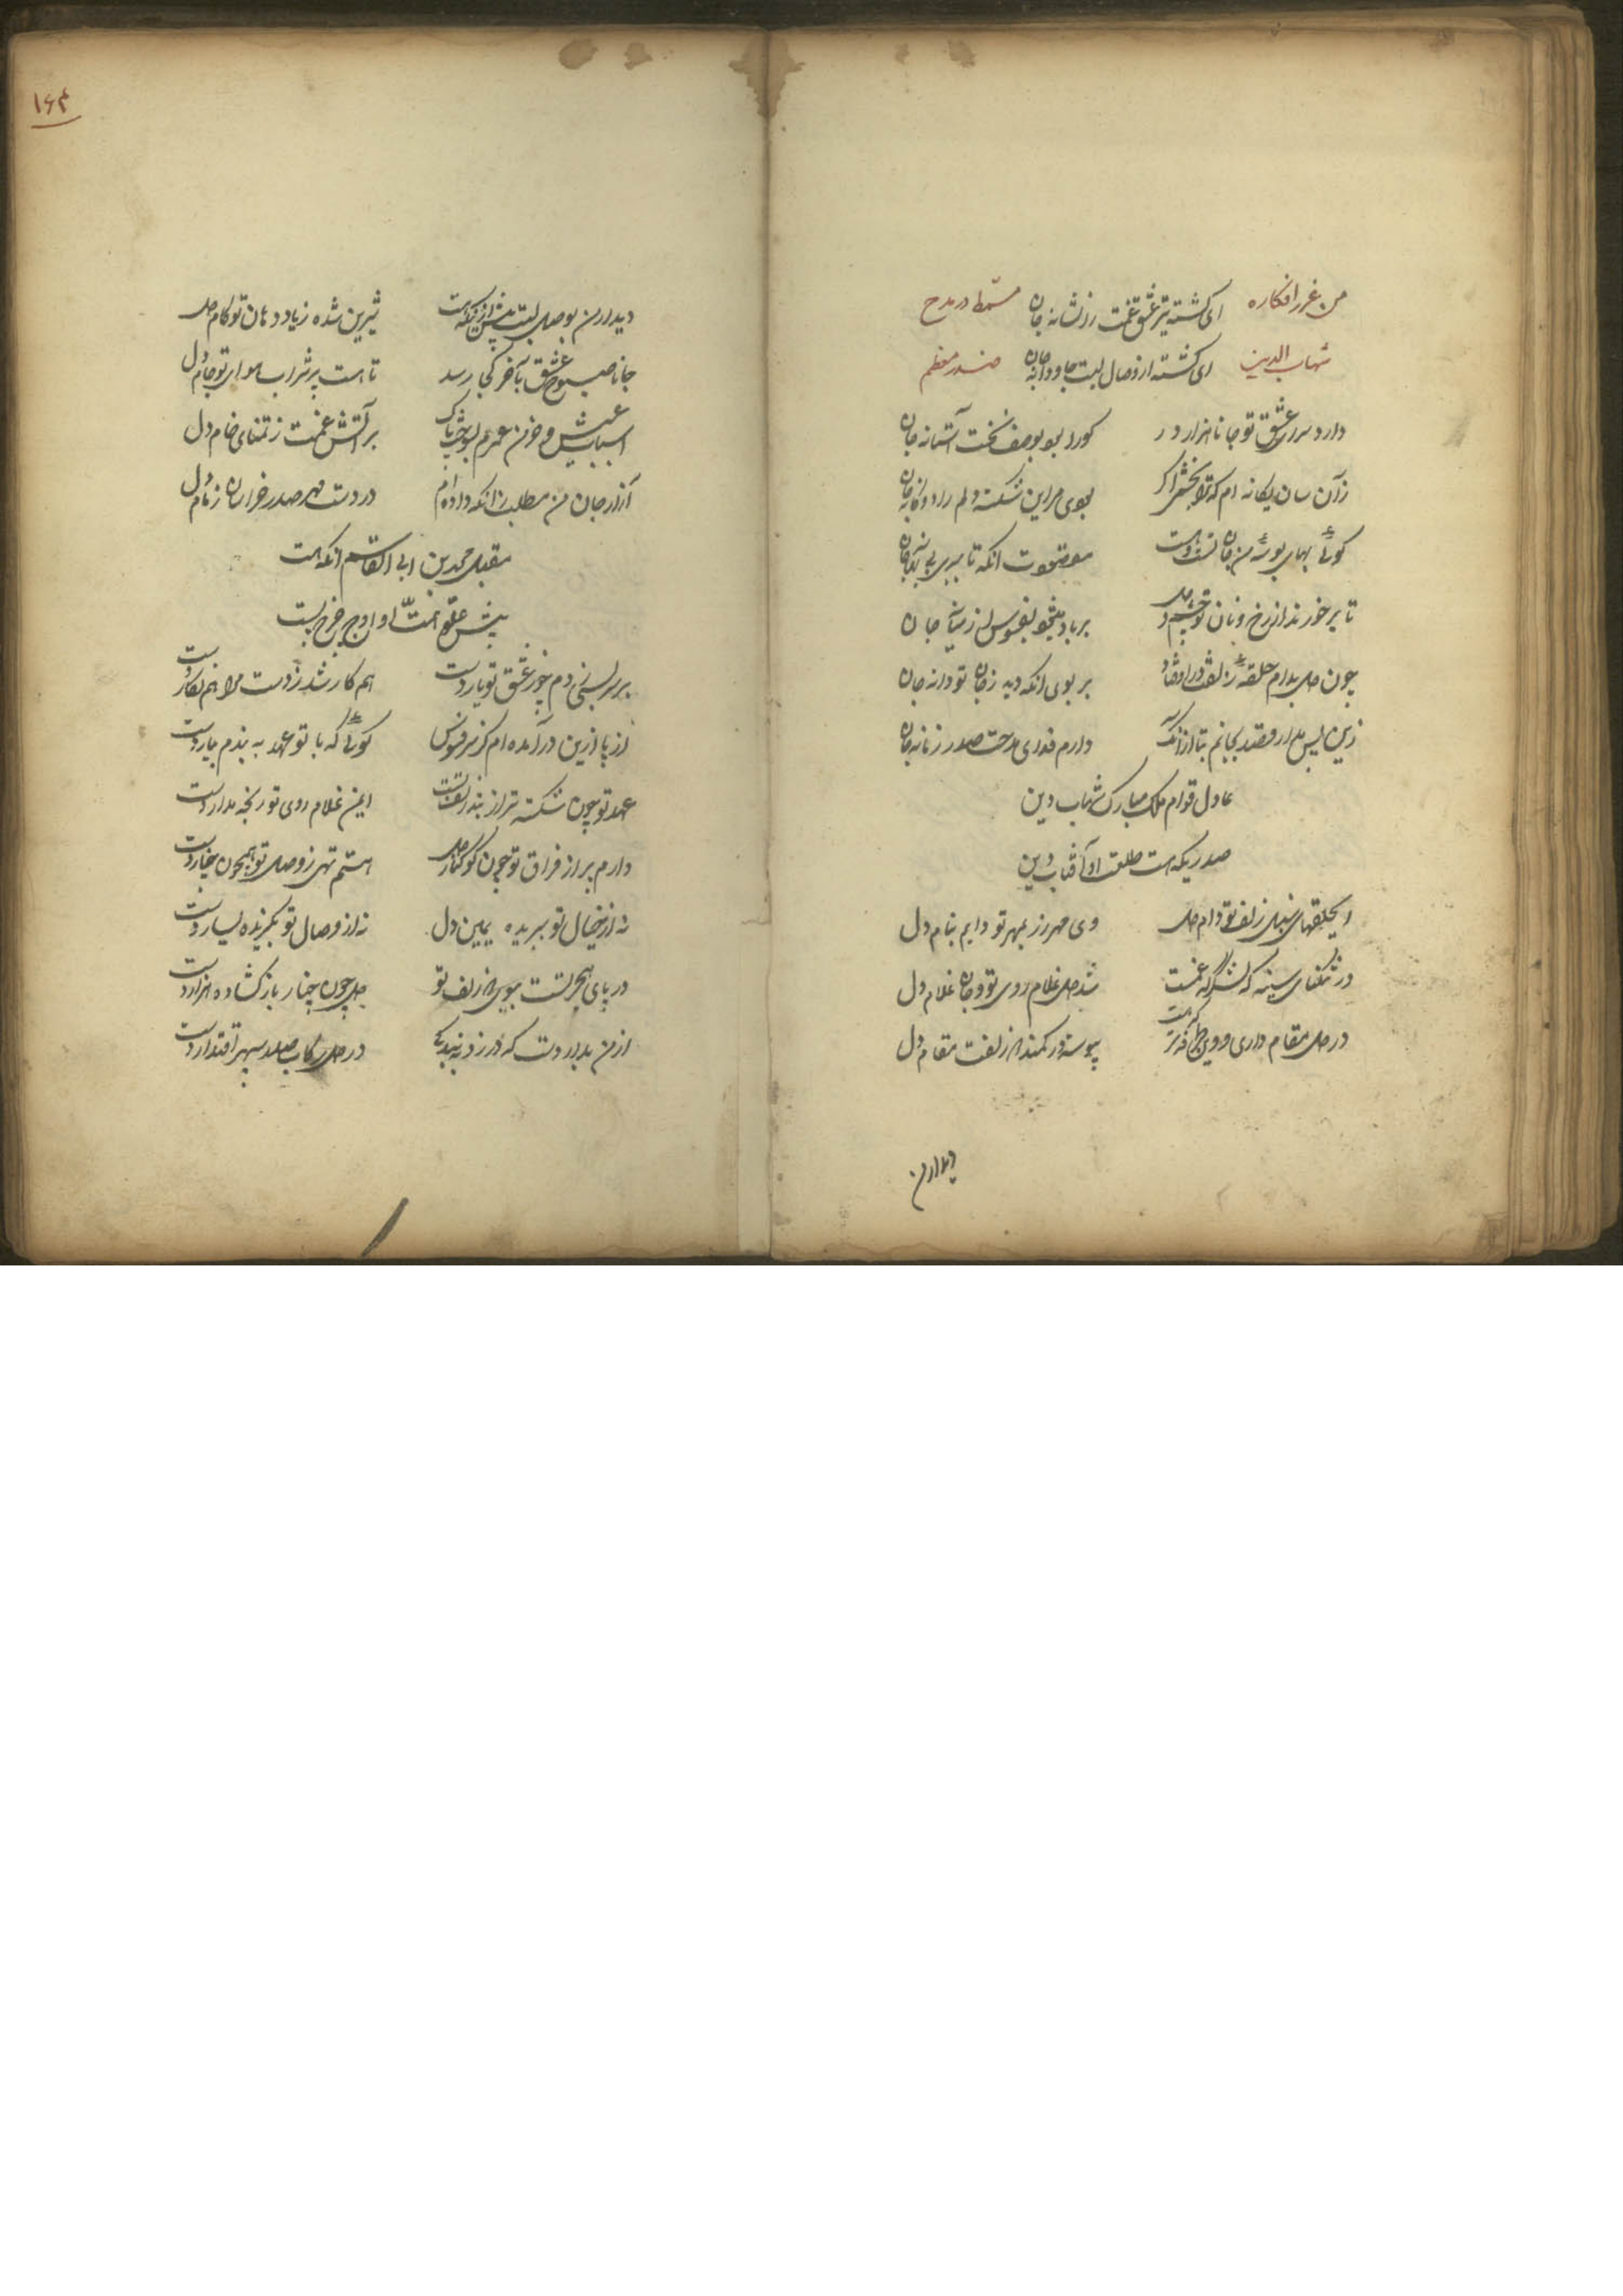 من غرر افکاره ای کشته تیر عشق غمت را نشانه جان مسمط در مدح
شهاب الدین ای کشته از وصال لبت جاودانه جان صدر معظم
دارد سرای عشق تو جانا هزار در کورا بود بوصف نخست آستانه جان
زآن سان یگانه ام که ترا بخشم اگر بوی مر این شکسته دلم را دوگانه جان
گوئی بهای بوسه من جان تست و هست موقوف انکه تا ببری بی بهانه جان
تا بر خورند از رخ و نان تو چشم و دل بر باد میشود بفسوس از میانه جان
چون دل بدام حلقه زلفت در اوفتاد بر بوی انکه دید زخال تو دانه جان
زین پس مدار قصد بجانم بتا از آنکه دارم فدای مدحت صدر زمانه جان
عادل قوام ملک مبارک شهاب دین
صدریکه هست طلعت او آفتاب دین
ای حلقهای سنبل زلف تو دام دل وی مهرورز بمهر تو دایم بنام دل
در تنگنای سینه که لشگرگه غمت شد دل غلام روی تو و جان غلام دل
در دل مقام داری و وین طرفه تر که هست پیوسته در کمند زلفت مقام دل
دیدارن
۱۶۴
دیدارن بوصل لبت پیش از آنکه هست شیرین شده زیاد دهان تو کام دل
جانا صبوح عشق بآخر کجا رسد تا هست پر شراب هوای تو جام دل
اسباب عیش و خرمن عمرم بسوخت پاک بر آتش غمت ز تمنای خام دل
آزار جان من مطلب زانکه داده ام در دست مهر صدر خراسان زمام دل
مقبل محمد بن ابی القاسم انکه هست
پیش علو همت او اوج چرخ پست
بر سر بسی زدم ز غم عشق تو یار دست هم کار شد ز دست مرا هم نگار دست
از پا ازین درآمده ام کز سر فسوس گوئی که با تو عهد به بندم بیار دست
عهد تو چون شکسته تر از بند زلف تست ایمن غلام روی تو رنجه مدار دست
دارم پر از فراق تو چون کوکنار دل هستم تهی ز وصل تو همچون چنار دست
نه از خیال تو ببریده یمین دل نه از وصال تو بگزیده یسار دست
در پای هجر تست ببوی زلف تو دل چون چنار باز گشاده هزار دست
از من بدار دست که در زد به بندگی در دل رکاب صدر سپهر اقتدار دست